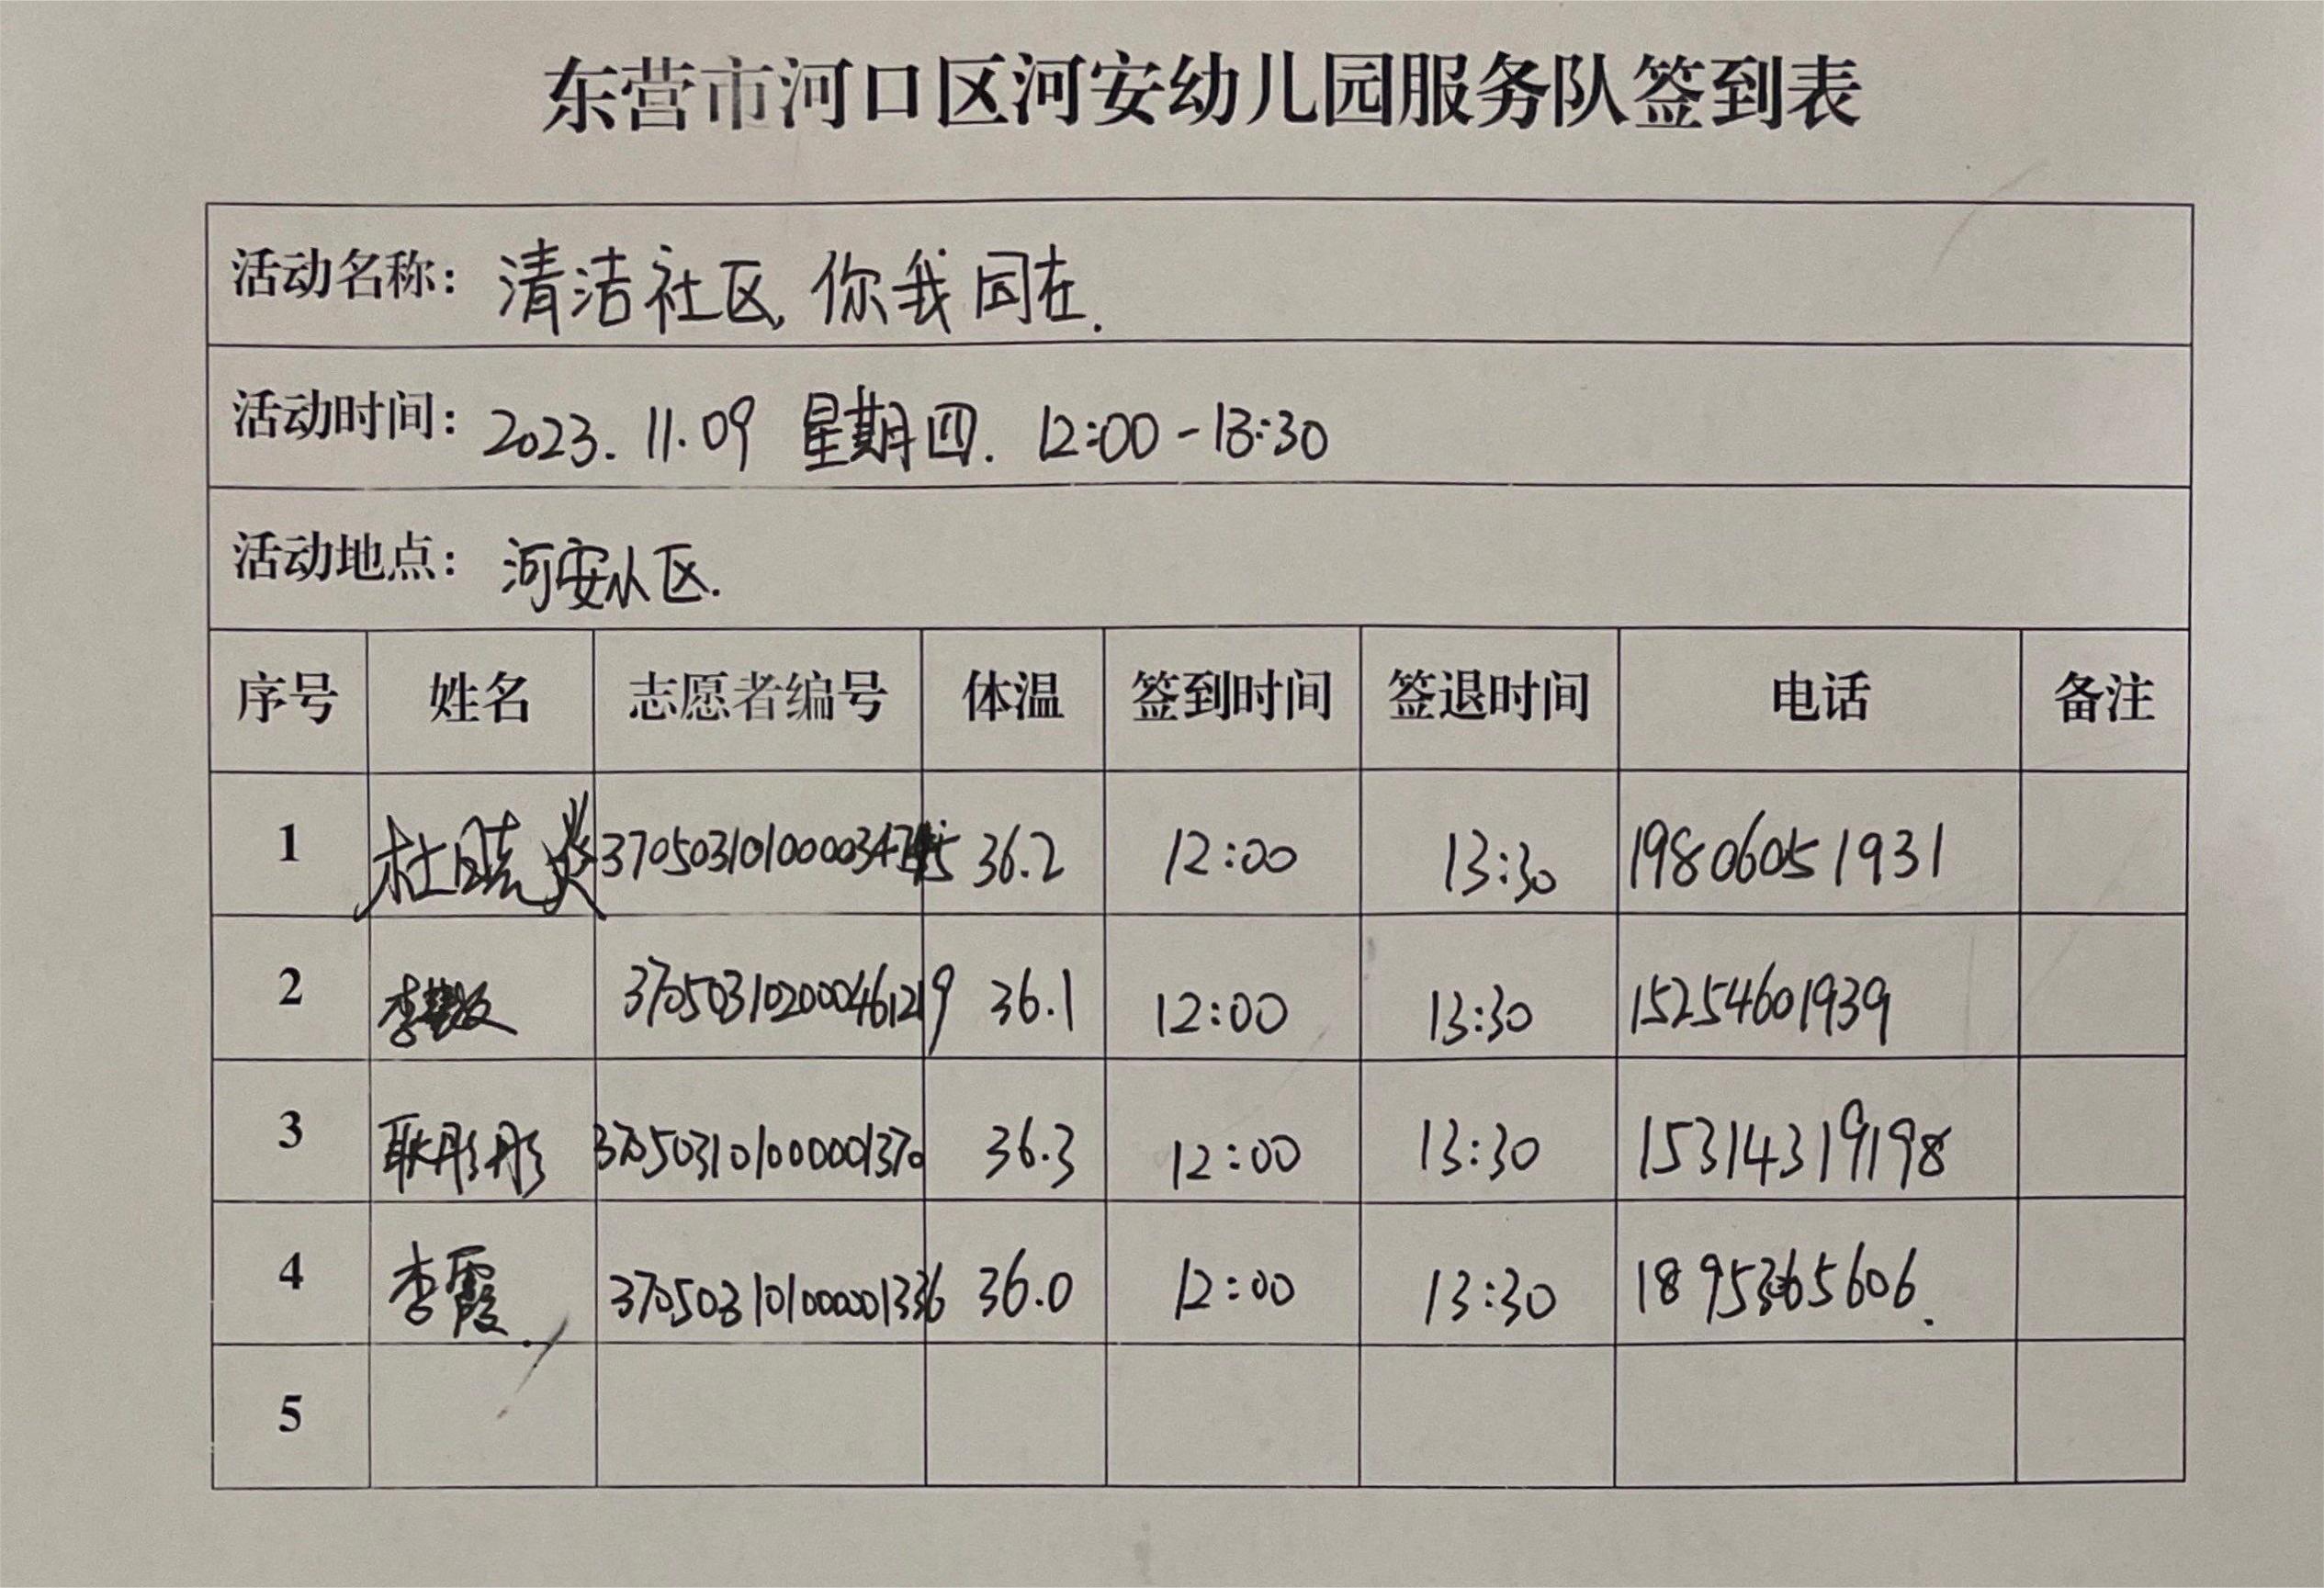 东营市河口区河安幼儿园服务队签到表
活动名称：清洁社区,你我同在.
活动时间：2023.11.09 星期四. 12:00-13:30
活动地点：河安小区.
序号 姓名 志愿者编号 体温 签到时间 签退时间 电话 备注
1 杜晓 36.2 12:00 13:30 19806051931
2 李 370503102000461219 36.1 12:00 13:30 15254601939
3 耿彤彤 370503101000001370 36.3 12:00 13:30 15314319198
4 李霞 370503101000001336 36.0 12:00 13:30
5